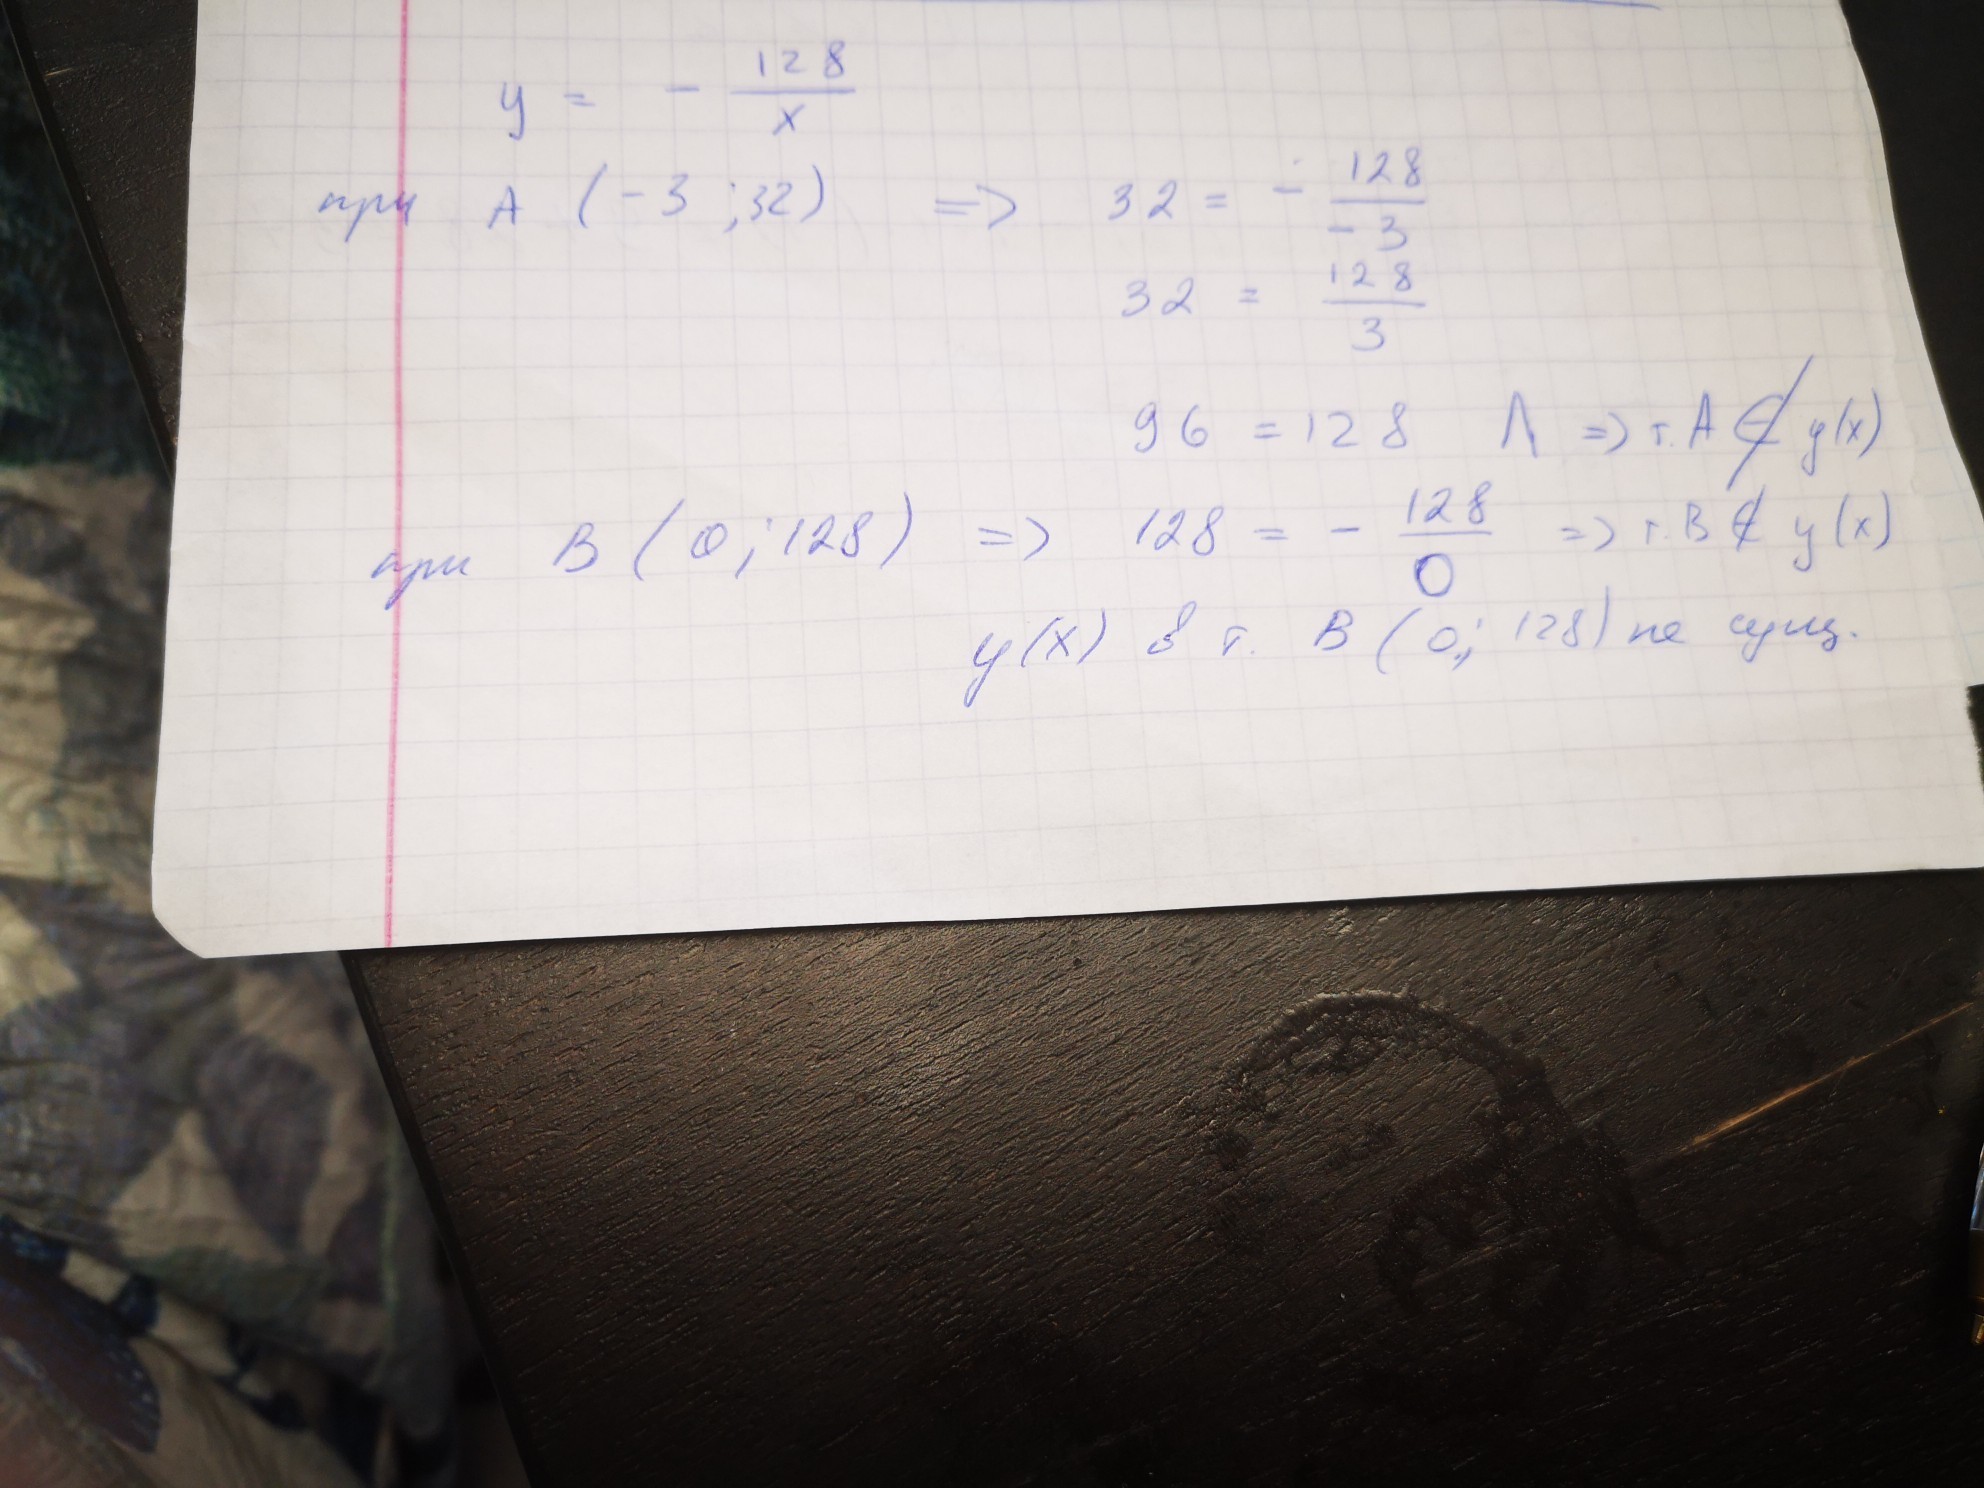 y = - 128/x
при A (-3 ; 32) => 32 = - 128/-3
32 = 128/3
96 = 128 Л => т. A ∉ y(x)
при B (0 ; 128) => 128 = - 128/0 => т. B ∉ y(x)
y(x) в т. B (0 ; 128) не сущ.